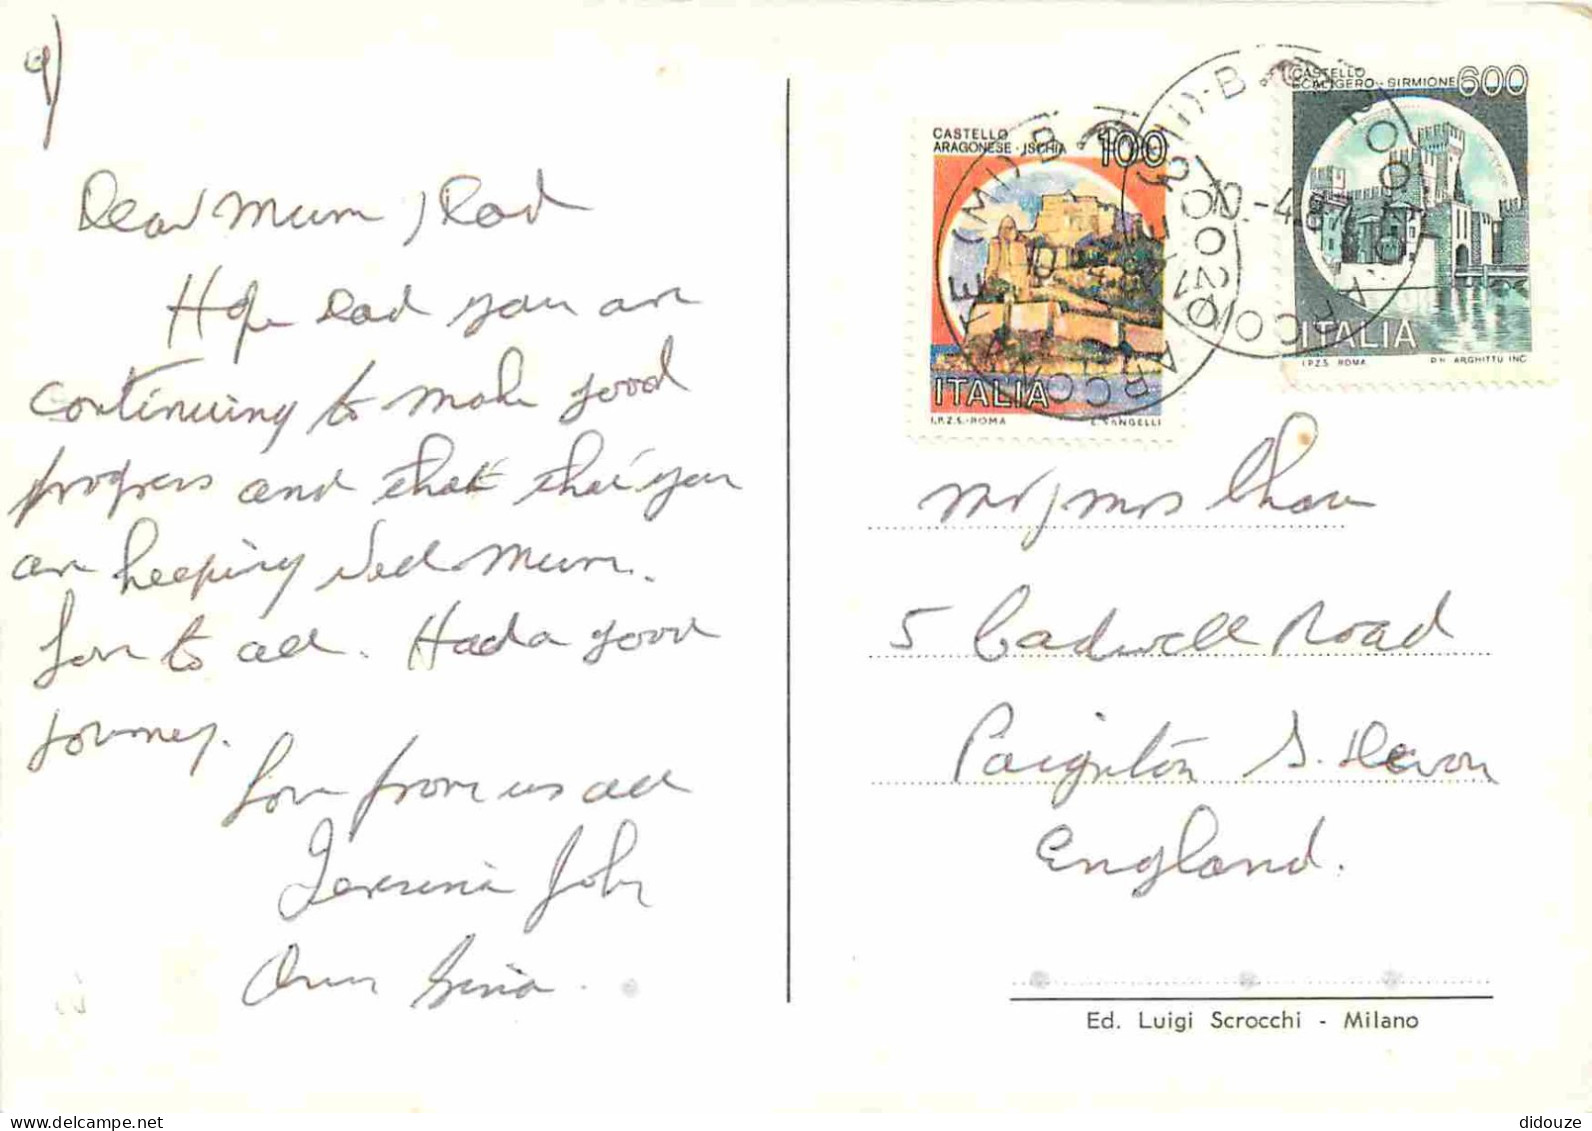 9)
Dear Mum, Dad
Hope Dad you are
continuing to make good
progress and that that you
are keeping well Mum.
Love to all. Had a good
journey.
Love from us all
John
Ann Gina.
CASTELLO
ARAGONESE - ISCHIA 100
ITALIA
I.P.Z.S. - ROMA E. VANGELLI
CASTELLO
SCALIGERO - SIRMIONE 600
ITALIA
I.P.Z.S. ROMA P.N. ARGHITTU INC.
ARCONATE (MI) - B
20020
Mr, Mrs
5 Cadwell Road
Paignton S. Devon
England.
Ed. Luigi Scrocchi - Milano
didouze